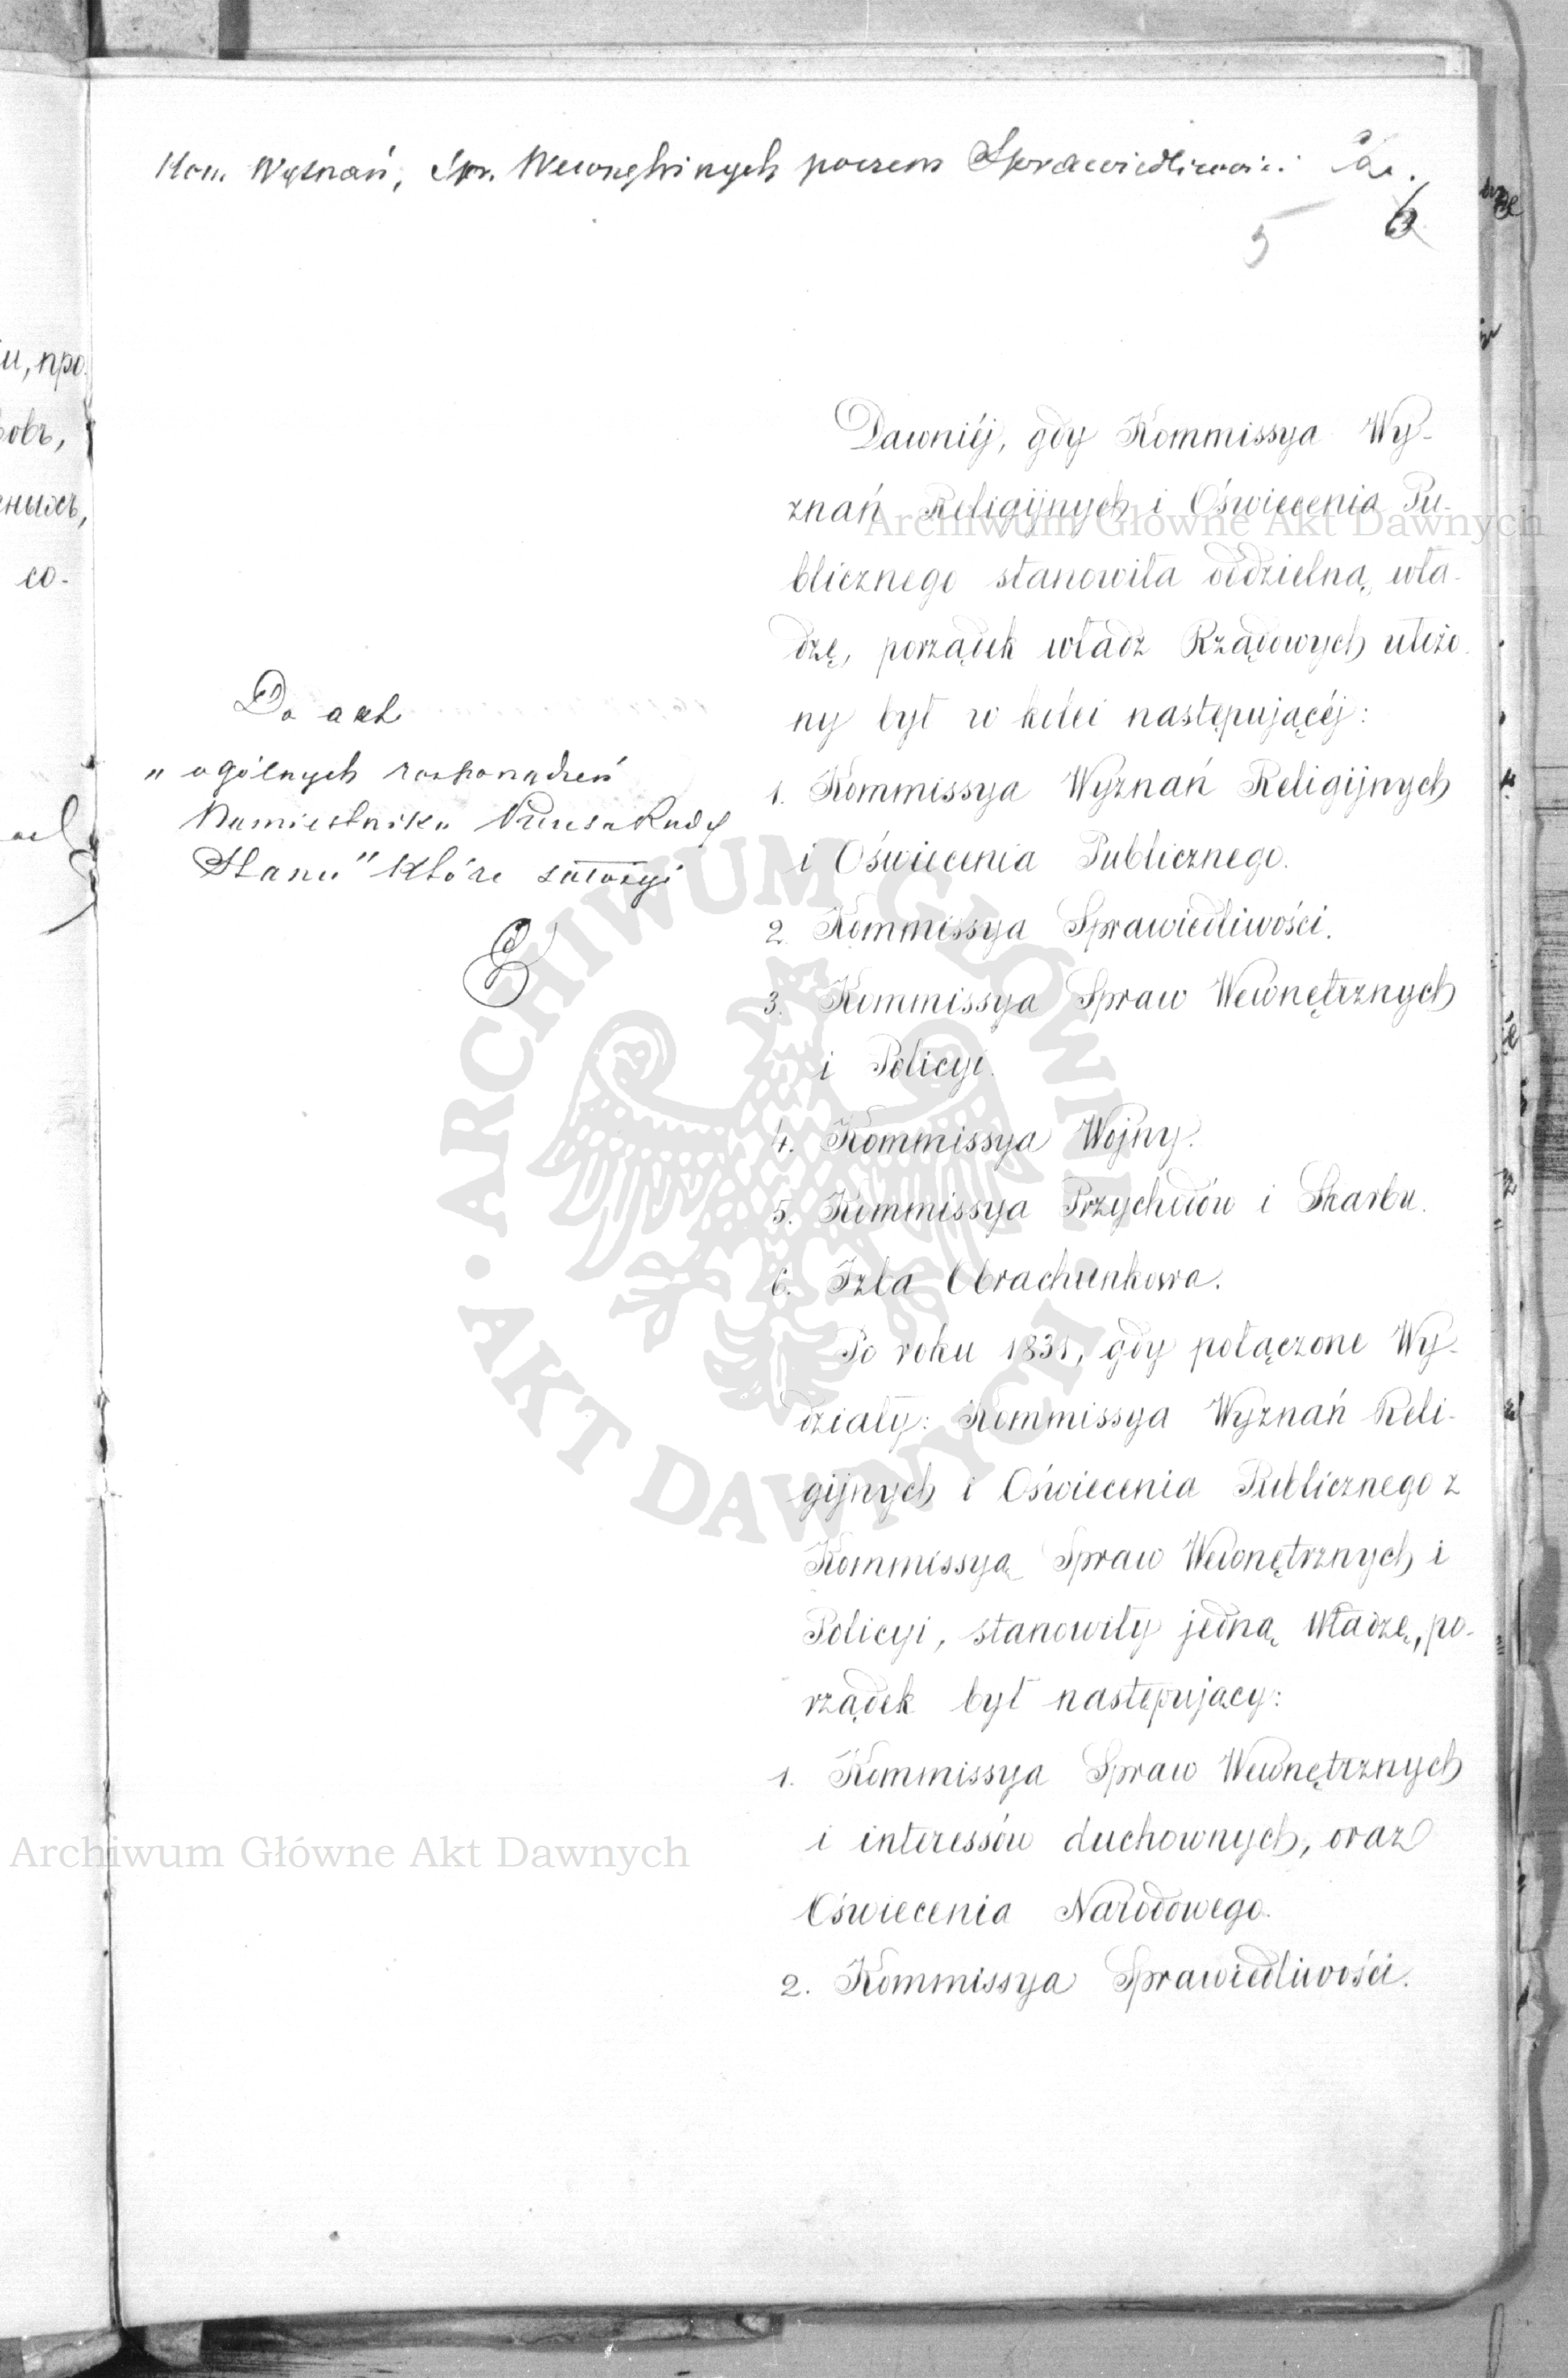 Kom. Wyznań, Spr. Wewnętrznych poczem Sprawiedliwości
5 6
Do akt
„ ogólnych rozporządzeń
Namiestnika Prezesa Rady
Stanu" które założyć
Dawniéj, gdy Kommissya Wy-
znań Religijnych i Oświecenia Pu-
blicznego stanowiła oddzielną wła-
dzę, porządek władz Rządowych ułożo-
ny był w kolei następującéj:
1. Kommissya Wyznań Religijnych
i Oświecenia Publicznego.
2. Kommissya Sprawiedliwości.
3. Kommissya Spraw Wewnętrznych
i Policyi.
4. Kommissya Wojny.
5. Kommissya Przychodów i Skarbu.
6. Izba Obrachunkowa.
Po roku 1831, gdy połączone Wy-
działy: Kommissya Wyznań Reli-
gijnych i Oświecenia Publicznego z
Kommissyą Spraw Wewnętrznych i
Policyi, stanowiły jedną Władzę, po-
rządek był następujacy:
1. Kommissya Spraw Wewnętrznych
i interessów duchownych, oraz
Oświecenia Narodowego.
2. Kommissya Sprawiedliwości.
и, про-
овъ,
ныхъ,
со-
Archiwum Główne Akt Dawnych
ARCHIWUM GŁÓWNE AKT DAWNYCH
Archiwum Główne Akt Dawnych